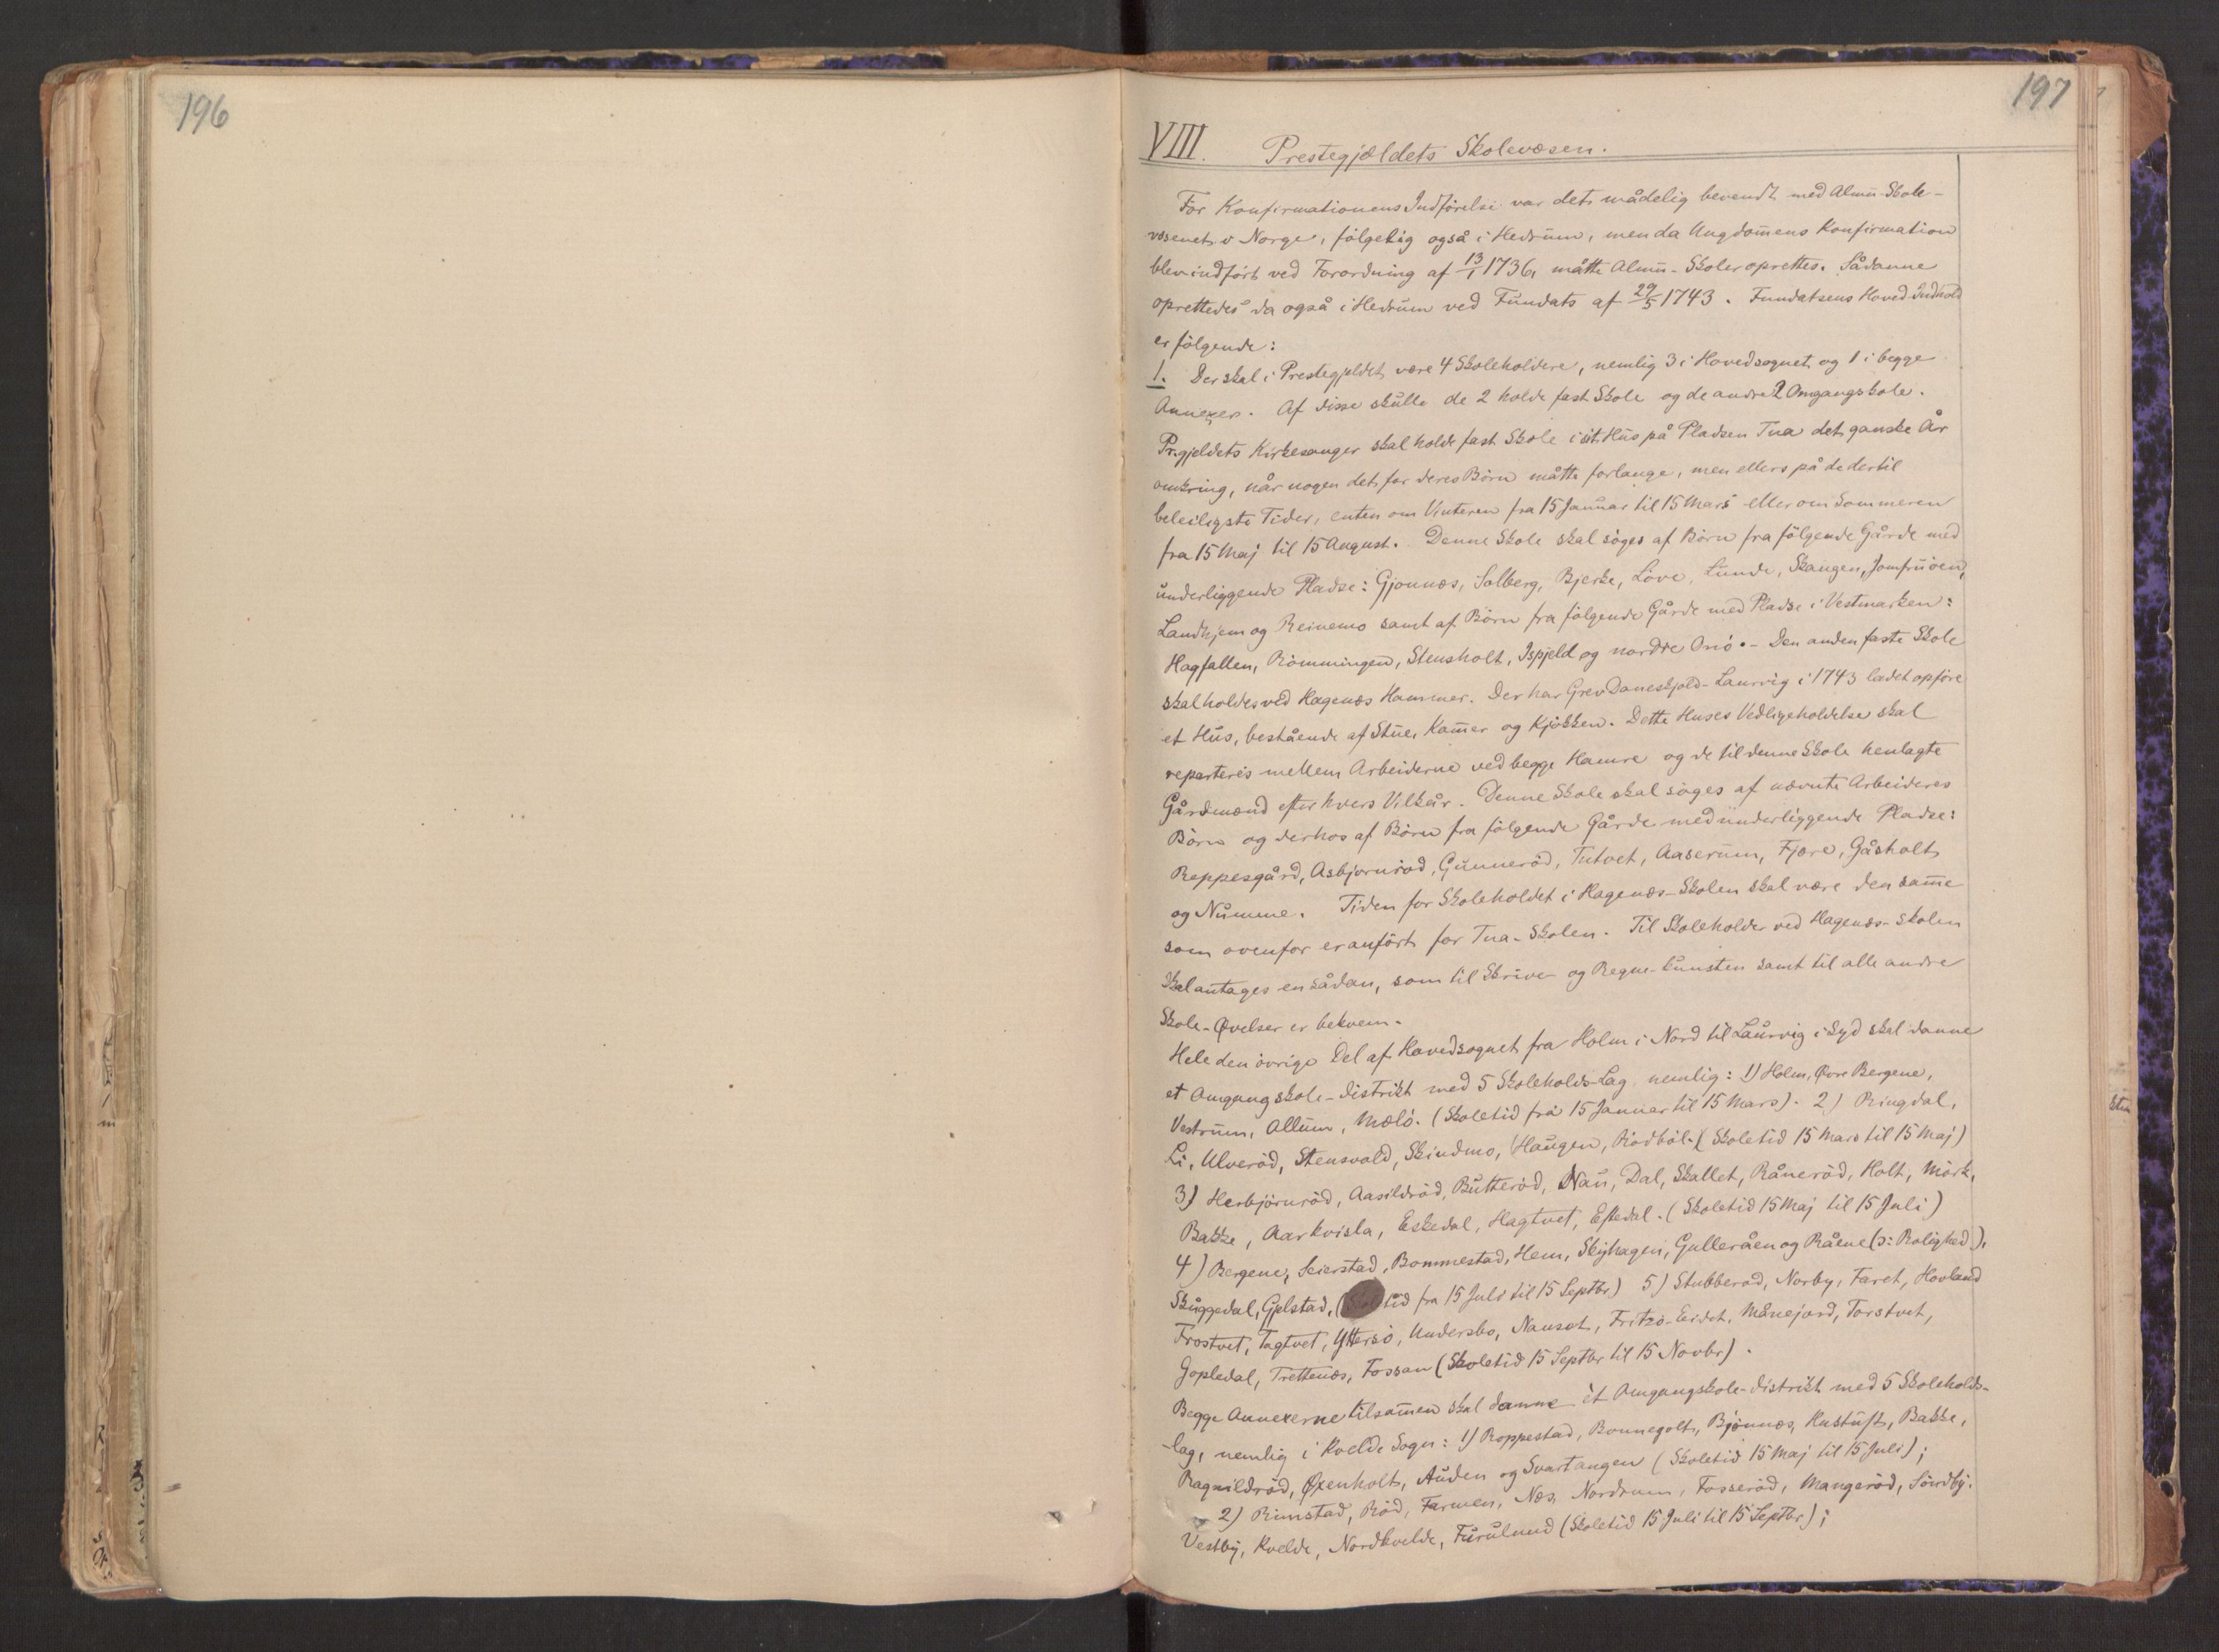 196
197
VIII. Prestegjældets Skolevæsen.
Før Konfirmationens Indførelse var det mådelig bevendt med Almu-Skole-
væsenet i Norge, følgelig også i Hedrum, men da Ungdomens Konfirmation
blev indført ved Forordning af 13/1 1736, måtte Almu-Skoler oprettes. Sådanne
oprettedes da også i Hedrum ved Fundats af 29/5 1743. Fundatsens Hoved-Indhold
er følgende:
1. Der skal i Prestegjeldet være 4 Skoleholdere, nemlig 3 i Hovedsognet og 1 i begge
Annexer. Af disse skulle de 2 holde fast Skole og de andre 2 Omgangskole.
Pr.gjeldets Kirkesanger skal holde fast Skole i sit Hus på Pladsen Tua det ganske År
omkring, når nogen det for deres Børn måtte forlange, men ellers på de dertil
beleiligste Tider, enten om Vinteren fra 15 Januar til 15 Mars eller om Sommeren
fra 15 Maj til 15 August. Denne Skole skal søges af Børn fra følgende Gårde med
underliggende Pladse: Gjønnes, Solberg, Bjerke, Løve, Lunde, Skaugen, Jomfruøen,
Landhjem og Reinemo samt af Børn fra følgende Gårde med Pladse i Vestmarken:
Hagfallen, Rømmingen, Stensholt, Ispjeld og nordre Onø. - Den anden faste Skole
skal holdes ved Hagenæs Hammer. Der har Grev Daneskjold-Laurvig i 1743 ladet opføre
et Hus, bestående af Stue, Kamer og Kjøkken. Dette Huses Vedligeholdelse skal
reparteres mellem Arbeiderne ved begge Hamre og de til denne Skole henlagte
Gårdmænd efter hvers Vilkår. Denne Skole skal søges af nævnte Arbeideres
Børn og derhos af Børn fra følgende Gårde med underliggende Pladse:
Reppesgård, Asbjørnrød, Gunnerød, Tutvet, Aaserum, Fjære, Gåsholt
og Numme. Tiden for Skoleholdet i Hagenæs-Skolen skal være den same
som ovenfor er anført for Tua-Skolen. Til Skoleholder ved Hagenæs-skolen
skal antages en sådan, som til Skrive- og Regne-kunsten samt til alle andre
Skole-Øvelser er bekvem.
Hele den øvrige Del af Hovedsognet fra Holm i Nord til Laurvig i Syd skal danne
et Omgangskole-distrikt med 5 Skoleholds-Lag nemlig: 1) Holm, Øvre Bergene,
Vestrum, Allum, Mælø. (Skoletid fra 15 Januar til 15 Mars). 2) Ringdal,
Li, Ulverød, Stensvold, Skindmo, Haugen, Rødbøl. (Skoletid 15 Mars til 15 Maj)
3) Herbjørnrød, Aasildrød, Butterød, Nau, Dal, Skallet, Rånerød, Holt, Mørk,
Bakke, Aarkvisla, Eskedal, Hagtvet, Eftedal. (Skoletid 15 Maj til 15 Juli)
4) Bergene, Seierstad, Bommestad, Hem, Skyhagen, Gulleråen og Råene (ɔ: Rolighed),
Skuggedal, Gjelstad, (tid fra 15 Juli til 15 Septbr) 5) Stubberød, Norby, Faret, Hovland
Frostvet, Tagtvet, Yttersø, Undersbo, Nanset, Fritzø-Eidet, Månejord, Torstvet,
Gopledal, Trettenes, Fossan (Skoletid 15 Septbr til 15 Novbr).
Begge Annexerne tilsamen skal danne ét Omgangskole-distrikt med 5 Skoleholds-
-lag, nemlig i Kvelde Sogn: 1) Roppestad, Bonnegolt, Bjønnes, Hustuft, Bakke,
Ragnildrød, Øxenholt, Auden og Svartangen (Skoletid 15 Maj til 15 Juli);
2) Rimstad, Rød, Farmen, Nes, Nordrum, Fosserød, Mangerød, Sørdby,
Vestby, Kvelde, Nordkvelde, Furulund (Skoletid 15 Juli til 15 Septbr);